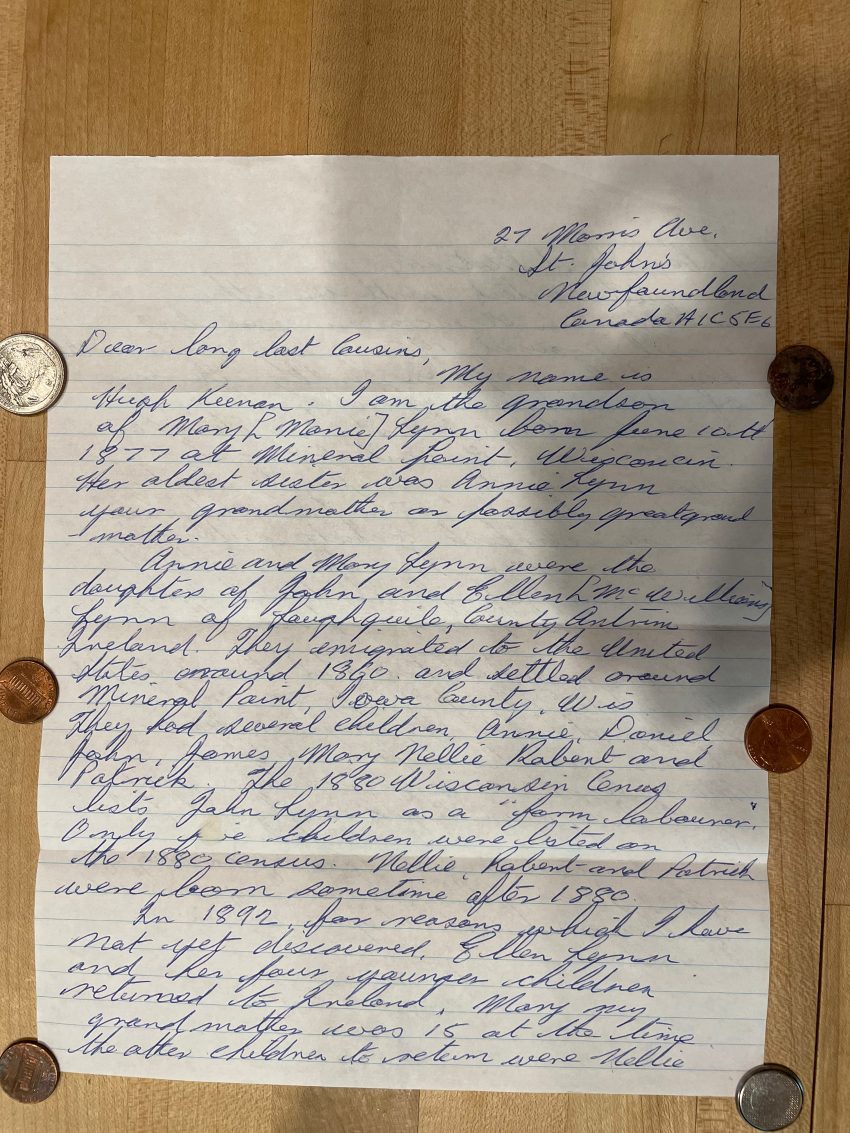 27 Morris Ave.
St. John's
Newfoundland
Canada A1C5E6
Dear long lost Cousins,
My name is
Hugh Keenan. I am the grandson
of Mary [Mamie] Lynn born June 10th
1877 at Mineral Point, Wisconcin.
Her oldest sister was Annie Lynn
your grandmother or possibly greatgrand
-mother.
Annie and Mary Lynn were the
daughters of John and Ellen [
Lynn of Loughguile, County Antrim
Ireland. They emigrated to the United
States around 1860. and settled around
Mineral Point, Iowa County, Wis
They had several children, Annie, Daniel,
John, James, Mary Nellie Robert and
Patrick. The 1880 Wisconsin Census
lists John Lynn as a "farm labourer".
Only five children were listed on
the 1880 census. Nellie, Robert and Patrick
were born sometime after 1880.
In 1892, for reasons which I have
not yet discovered, Ellen Lynn
and her four younger children
returned to Ireland, Mary my
grandmother was 15 at the time
the other children to return were Nellie